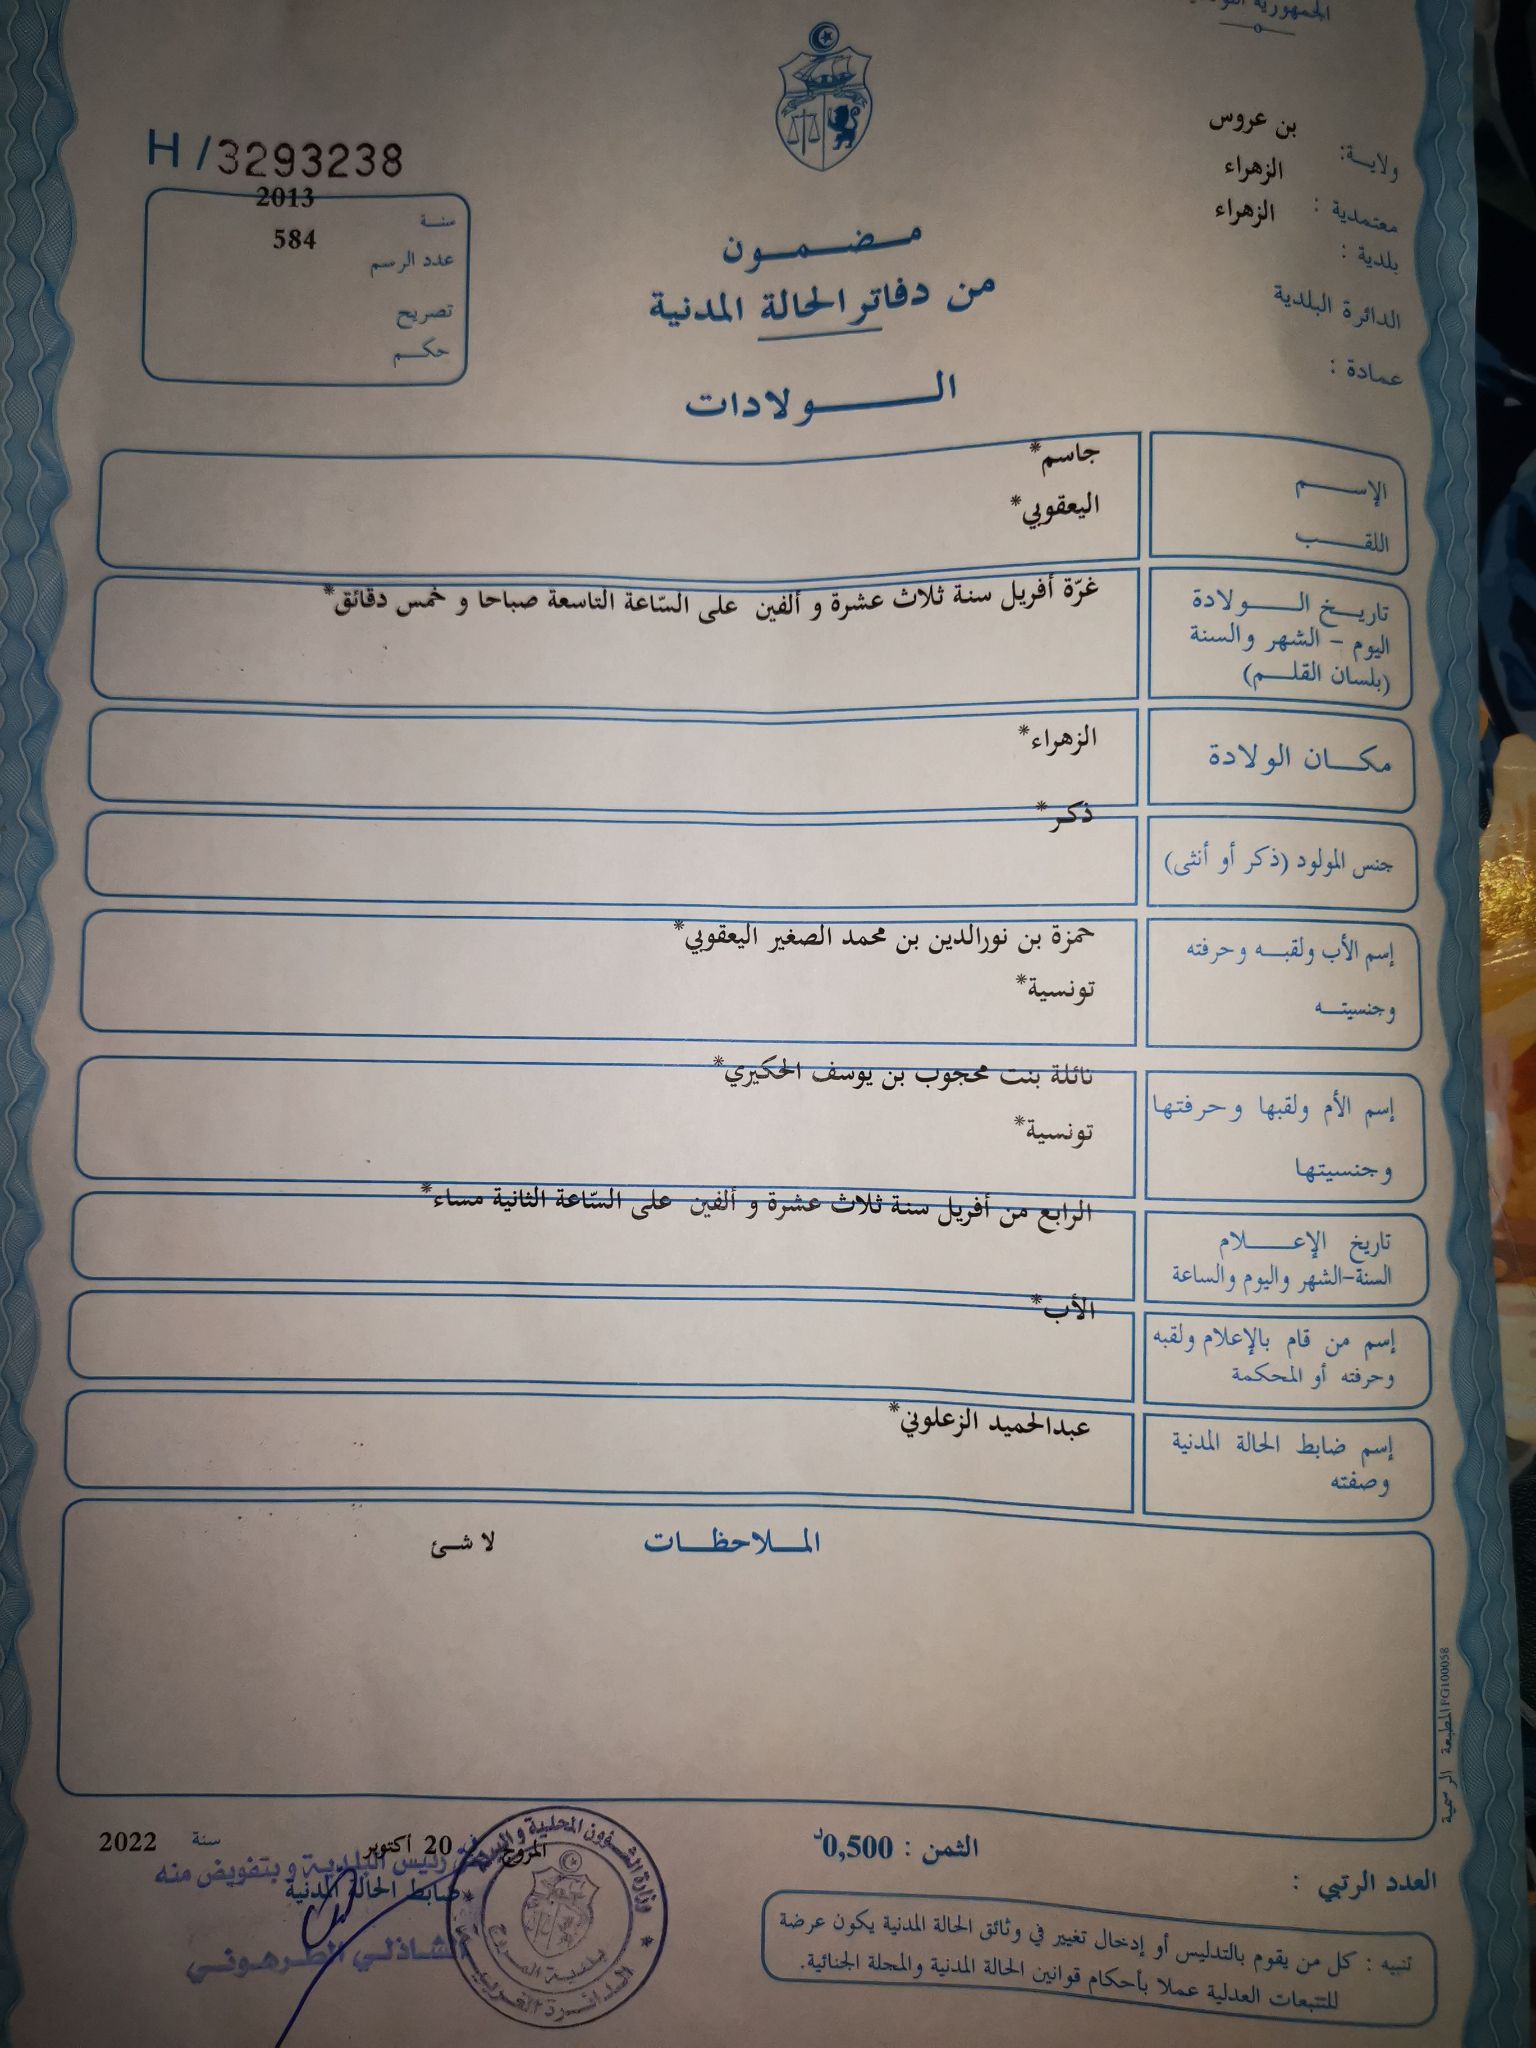 الجمهورية التونسية
ولاية: بن عروس
معتمدية : الزهراء
بلدية : الزهراء
الدائرة البلدية
عمادة :
H / 3293238
سنة 2013
عدد الرسم 584
تصريح
حكم
مضمون
من دفاتر الحالة المدنية
الولادات
الإسم جاسم*
اللقب اليعقوبي*
تاريخ الولادة غرّة أفريل سنة ثلاث عشرة و ألفين على السّاعة التاسعة صباحا و خمس دقائق*
اليوم - الشهر والسنة
(بلسان القلم)
مكان الولادة الزهراء*
جنس المولود (ذكر أو أنثى) ذكر*
إسم الأب ولقبه وحرفته حمزة بن نورالدين بن محمد الصغير اليعقوبي*
وجنسيته تونسية*
إسم الأم ولقبها وحرفتها نائلة بنت محجوب بن يوسف الحكيري*
وجنسيتها تونسية*
تاريخ الإعلام الرابع من أفريل سنة ثلاث عشرة و ألفين على السّاعة الثانية مساء*
السنة-الشهر واليوم والساعة
إسم من قام بالإعلام ولقبه الأب*
وحرفته أو المحكمة
إسم ضابط الحالة المدنية عبدالحميد الزعلوني*
وصفته
الملاحظات لا شئ
المطبعة الرسمية FG100058
الثمن : 0,500د
العدد الرتبي :
تنبيه : كل من يقوم بالتدليس أو إدخال تغيير في وثائق الحالة المدنية يكون عرضة
للتتبعات العدلية عملا بأحكام قوانين الحالة المدنية والمجلة الجنائية.
المروج في 20 أكتوبر سنة 2022
رئيس البلدية و بتفويض منه
ضابط الحالة المدنية
الشاذلي الطرهوني
وزارة الشؤون المحلية والبيئة
بلدية المروج
الدائرة الغربية